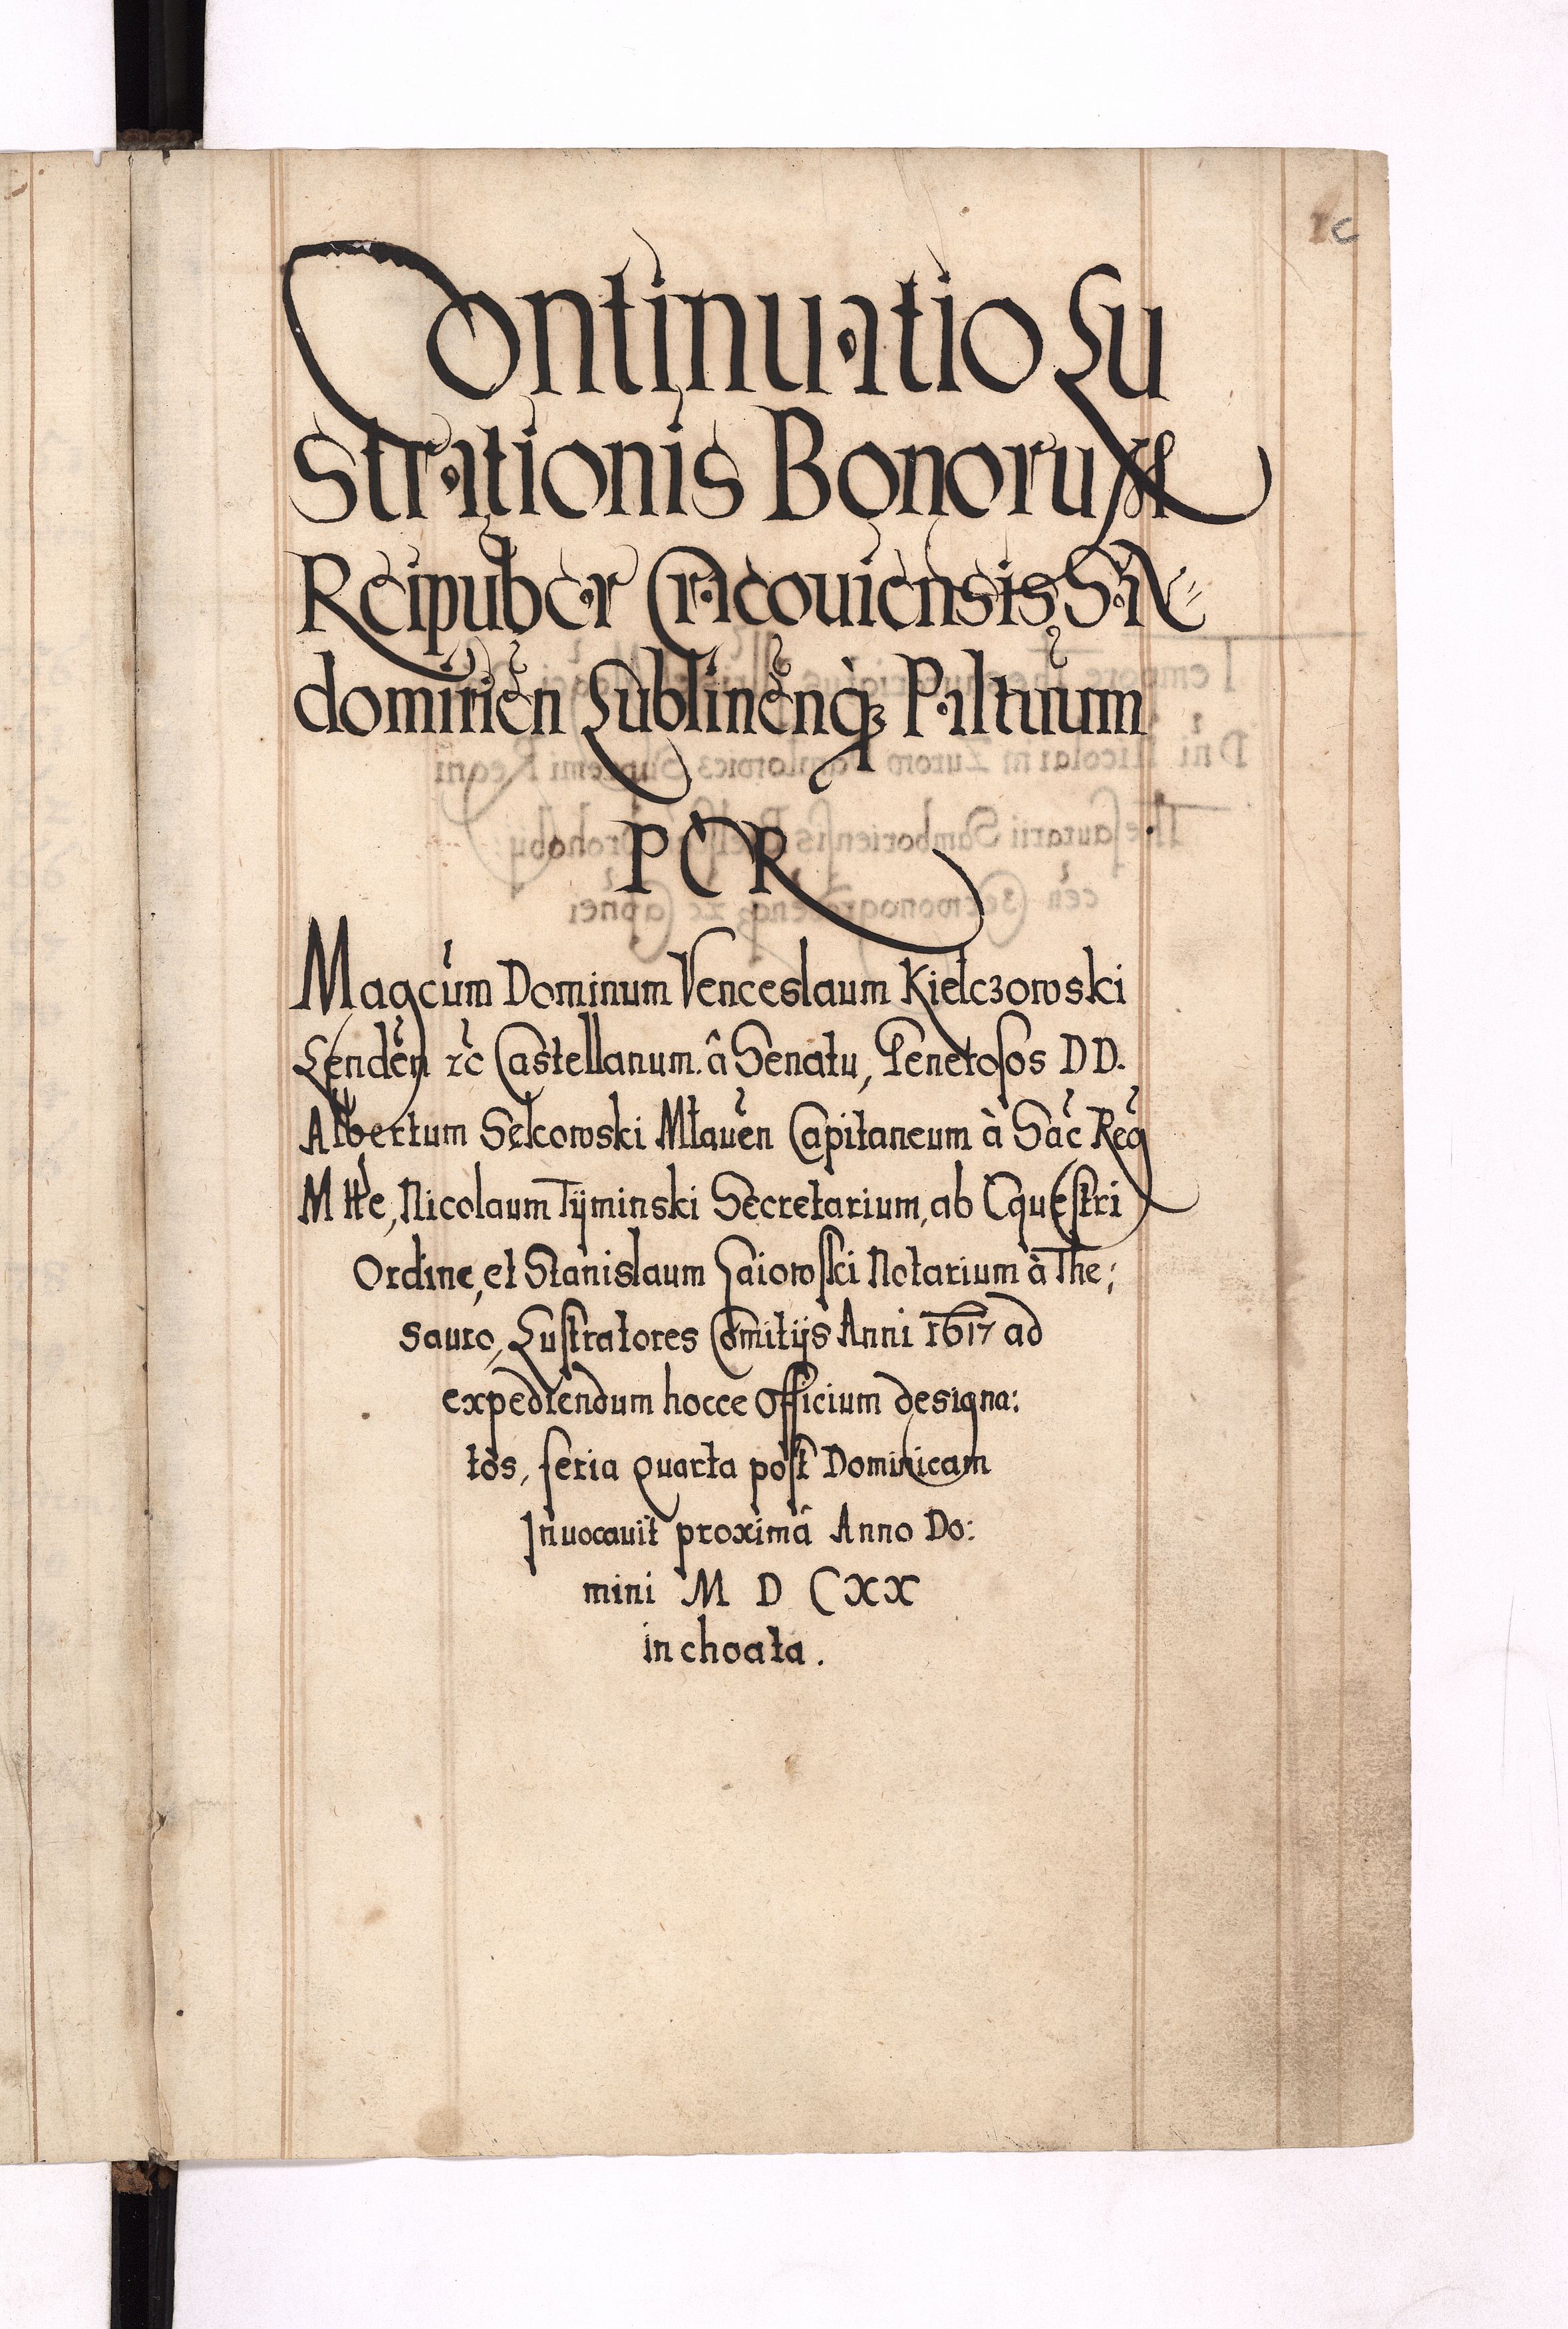 Continuatio Lu
strationis Bonorum
Reipubcer Cracouiensis, San
domirien Lublinenq₃ Palatiuum
PER
Magcum Dominum Venceslaum Kielczowski
Lenden ⁊c Castellanum. â Senatu, Generosos DD.
Albertum Selcowski Mlauen Capitaneum à Sac Reg
Mtte, Nicolaum Tÿminski Secretarium, ab Equestri
Ordine, et Stanislaum Gaiowski Notarium à The;
sauro, Lustratores Comitijs Anni 1617 ad
expediendum hocce Officium designa:
tos, feria quarta post Dominicam
Inuocauit proximâ Anno Do:
mini M D C X X
inchoata.